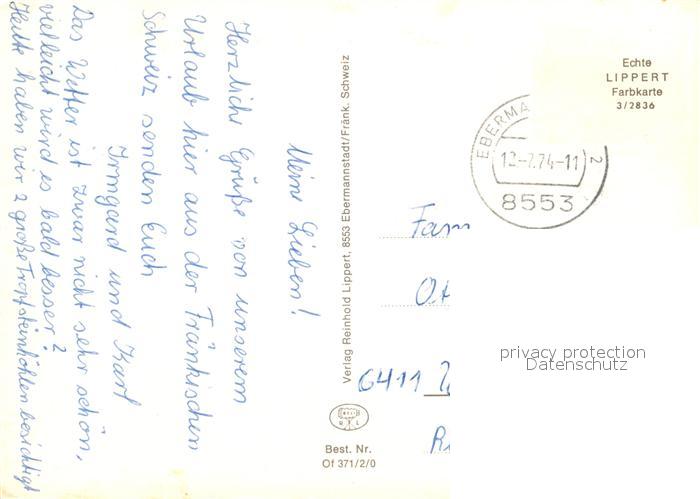 Meine Lieben!
Herzliche Grüße von unserem
Urlaub hier aus der Fränkischen
Schweiz senden Euch
Irmgard und Karl
Das Wetter ist zwar nicht sehr schön,
vielleicht wird es bald besser?
Heute haben wir 2 große Tropfsteinhöhlen besichtigt
Verlag Reinhold Lippert, 8553 Ebermannstadt/Fränk. Schweiz
Best. Nr.
Of 371/2/0
Echte
LIPPERT
Farbkarte
3/2836
EBERMA
12-7.74-11
2
8553
Fam
6411
privacy protection
Datenschutz